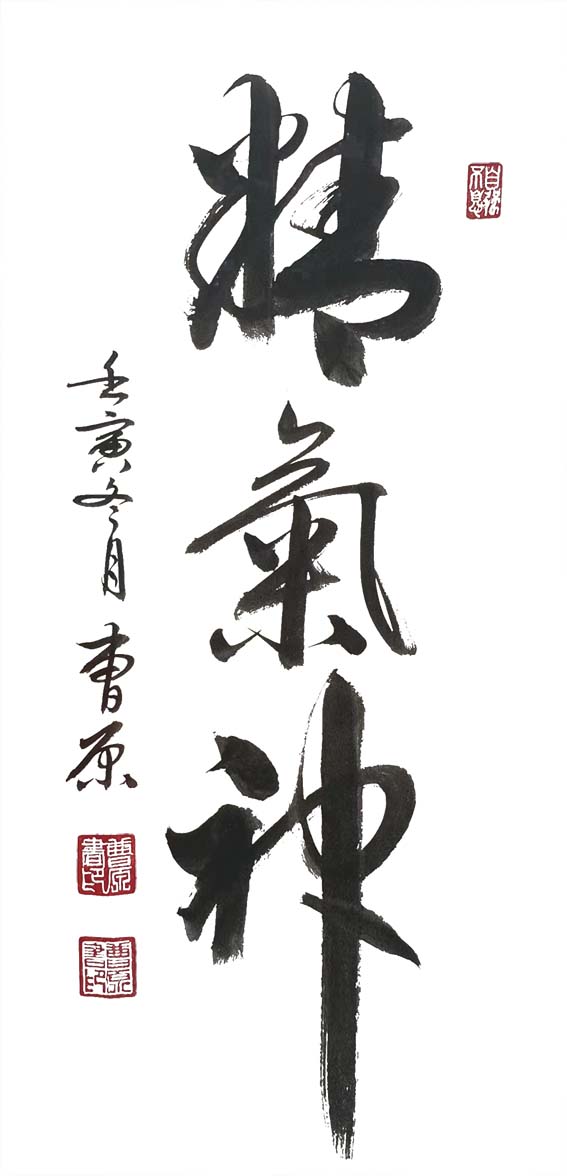 精氣神
壬寅冬月 曹原
自強不息
曹原書印
曹原書印